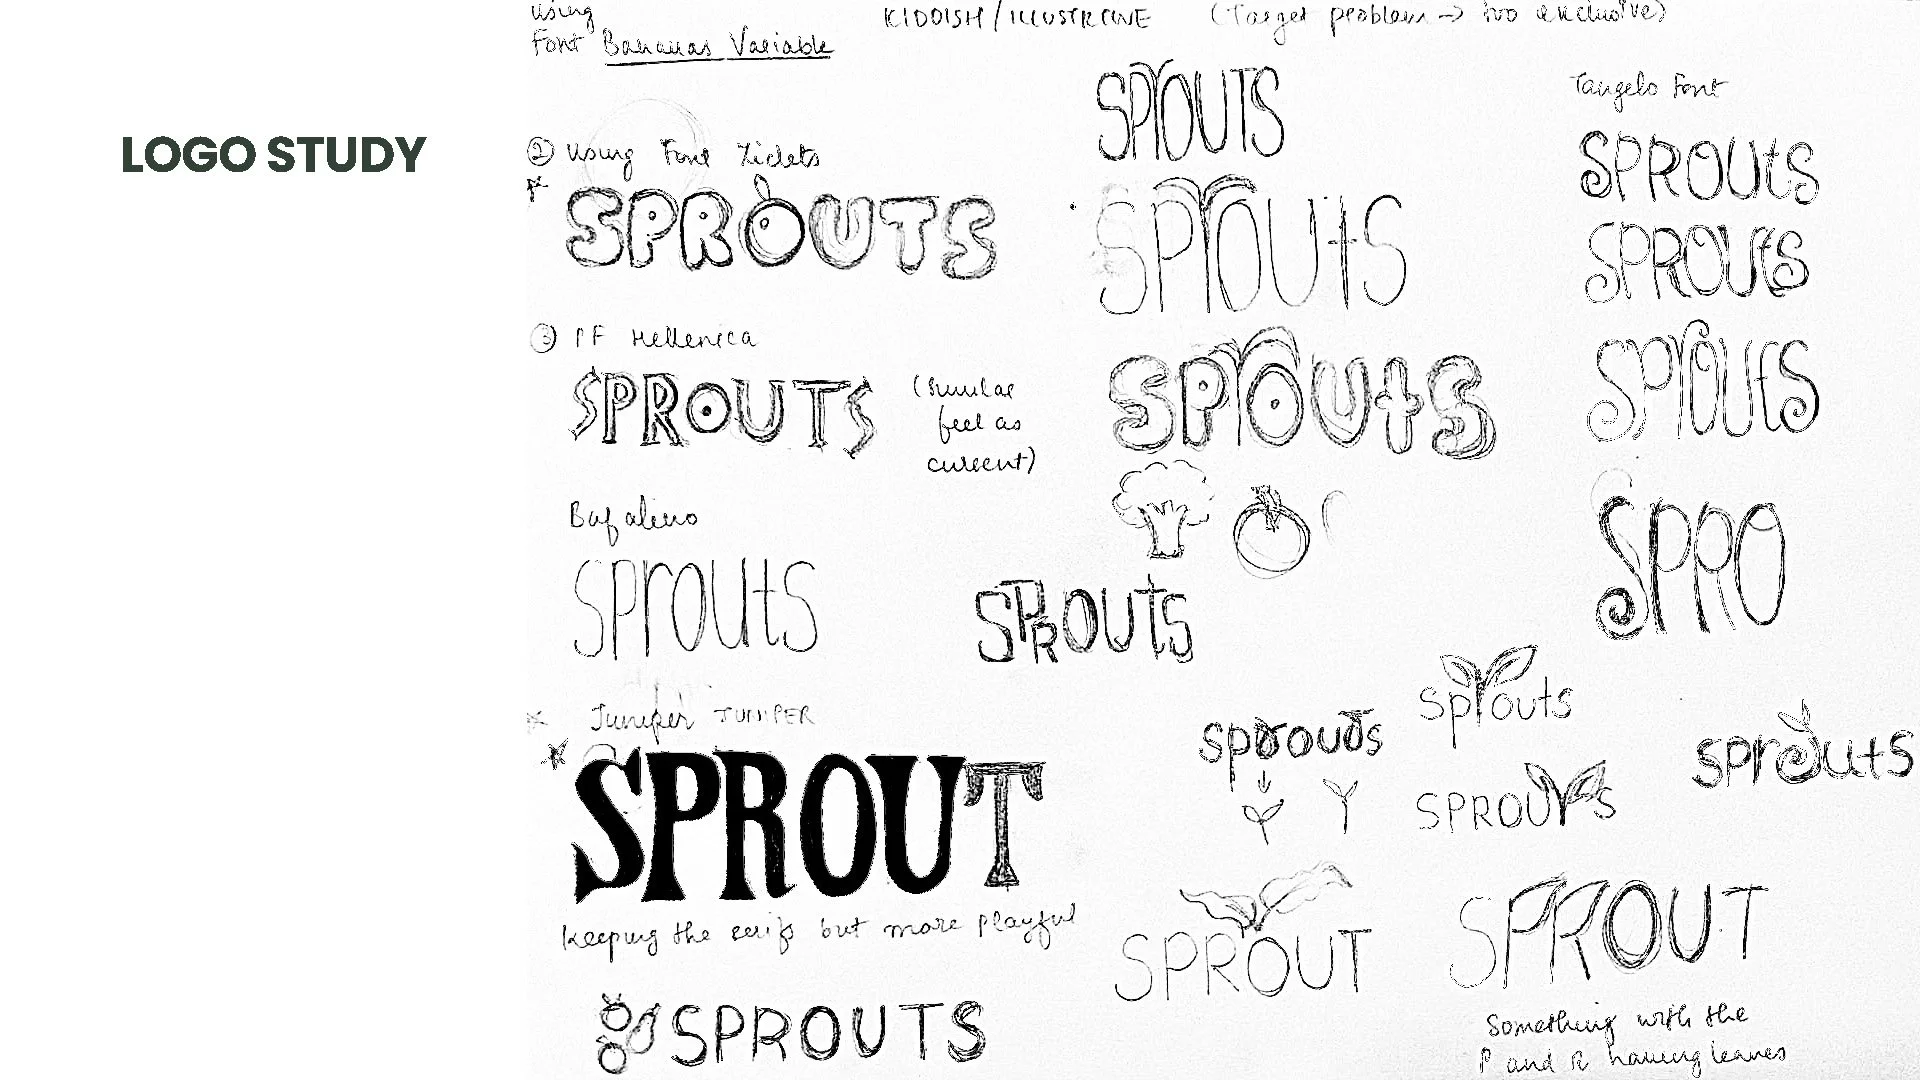 LOGO STUDY
using
Font Bananas Variable
KIDDISH / ILLUSTRATIVE (Target problem → too exclusive)
② Using Font Ziclets
SPROUTS
③ PF Hellenica
SPROUTS
(similar
feel as
current)
sprouts
Juniper JUNIPER
SPROUT
Keeping the serifs but more playful
SPROUTS
SPrOUTS
SPrOUtS
SPrOUtS
SPROUTS
Tangelo Font
SPROUtS
SPROUtS
SPrOUtS
SPRO
sprouts
sprouts
SPROUTS
sprouts
SPROUT
SPROUT
Something with the
P and R having leaves